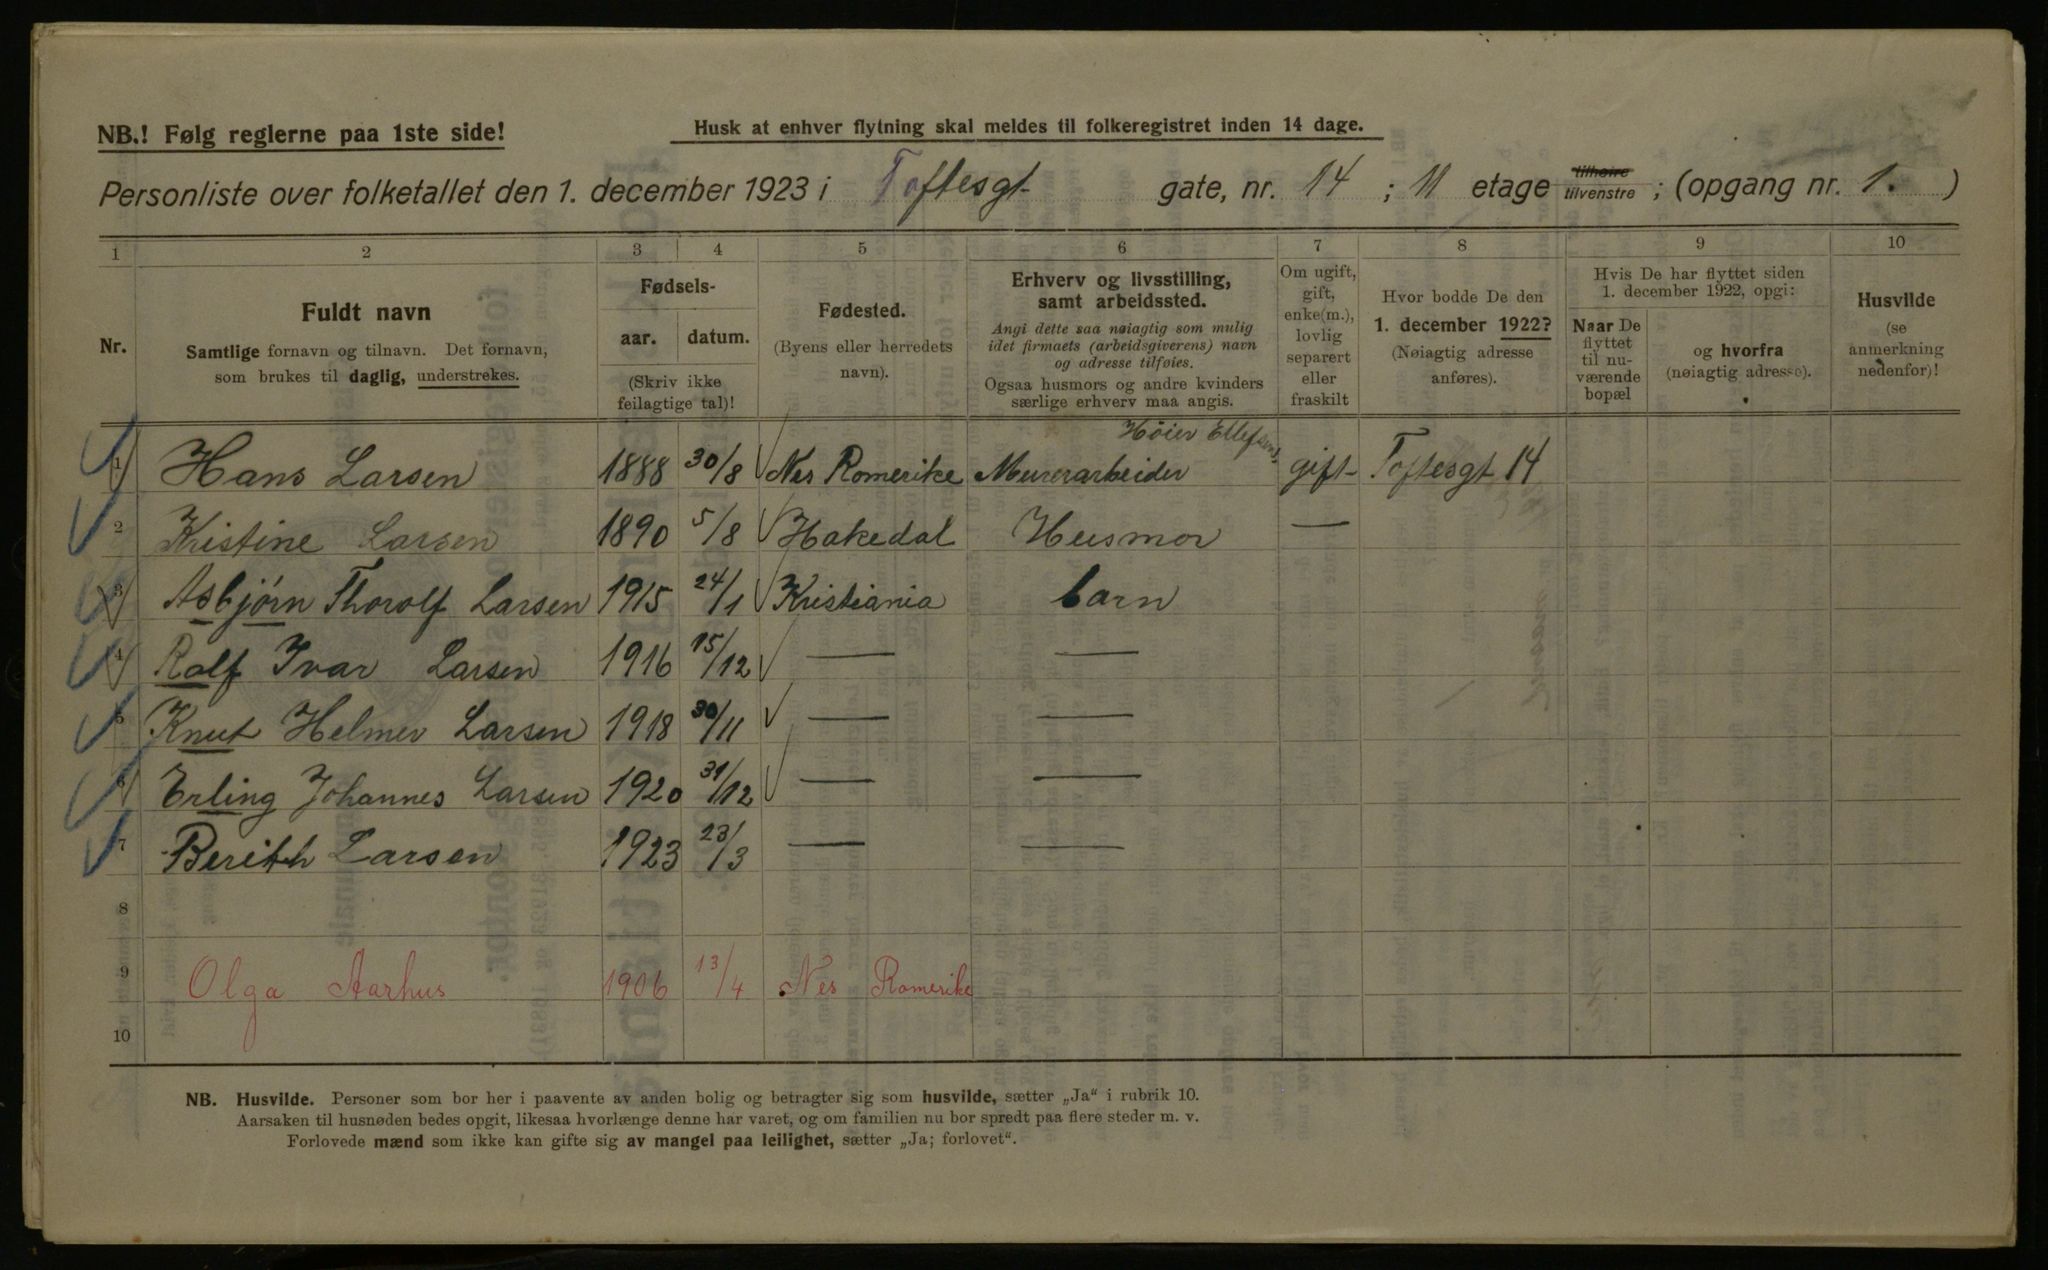 NB.! Følg reglerne paa 1ste side!
Husk at enhver flytning skal meldes til folkeregistret inden 14 dage.
Personliste over folketallet den 1. december 1923 i Toftesgt gate, nr. 14 ; II etage tilhøire tilvenstre ; (opgang nr. 1. )
1 2 3 4 5 6 7 8 9 10
Nr.
Fuldt navn
Samtlige fornavn og tilnavn. Det fornavn,
som brukes til daglig, understrekes.
Fødsels-
aar. datum.
(Skriv ikke
feilagtige tal)!
Fødested.
(Byens eller herredets
navn).
Erhverv og livsstilling,
samt arbeidssted.
Angi dette saa nøiagtig som mulig
idet firmaets (arbeidsgiverens) navn
og adresse tilføies.
Ogsaa husmors og andre kvinders
særlige erhverv maa angis.
Om ugift,
gift,
enke(m.),
lovlig
separert
eller
fraskilt
Hvor bodde De den
1. december 1922?
(Nøiagtig adresse
anføres).
Hvis De har flyttet siden
1. december 1922, opgi:
Naar De
flyttet
til nu-
værende
bopæl
og hvorfra
(nøiagtig adresse).
Husvilde
(se
anmerkning
nedenfor)!
Høier Ellefsens
1 Hans Larsen 1888 30/8 Nes Romerike Murerarbeider gift Toftesgt 14
2 Kristine Larsen 1890 5/8 Hakedal Husmor —
3 Asbjörn Thorolf Larsen 1915 24/1 Kristiania barn
4 Rolf Ivar Larsen 1916 15/12 — —
5 Knut Helmer Larsen 1918 30/11 — —
6 Erling Johannes Larsen 1920 31/12 — —
7 Berith Larsen 1923 23/3 — —
8
9 Olga Aarhus 1906 13/4 Nes Romerike
10
NB. Husvilde. Personer som bor her i paavente av anden bolig og betragter sig som husvilde, sætter „Ja“ i rubrik 10.
Aarsaken til husnøden bedes opgit, likesaa hvorlænge denne har varet, og om familien nu bor spredt paa flere steder m. v.
Forlovede mænd som ikke kan gifte sig av mangel paa leilighet, sætter „Ja; forlovet“.